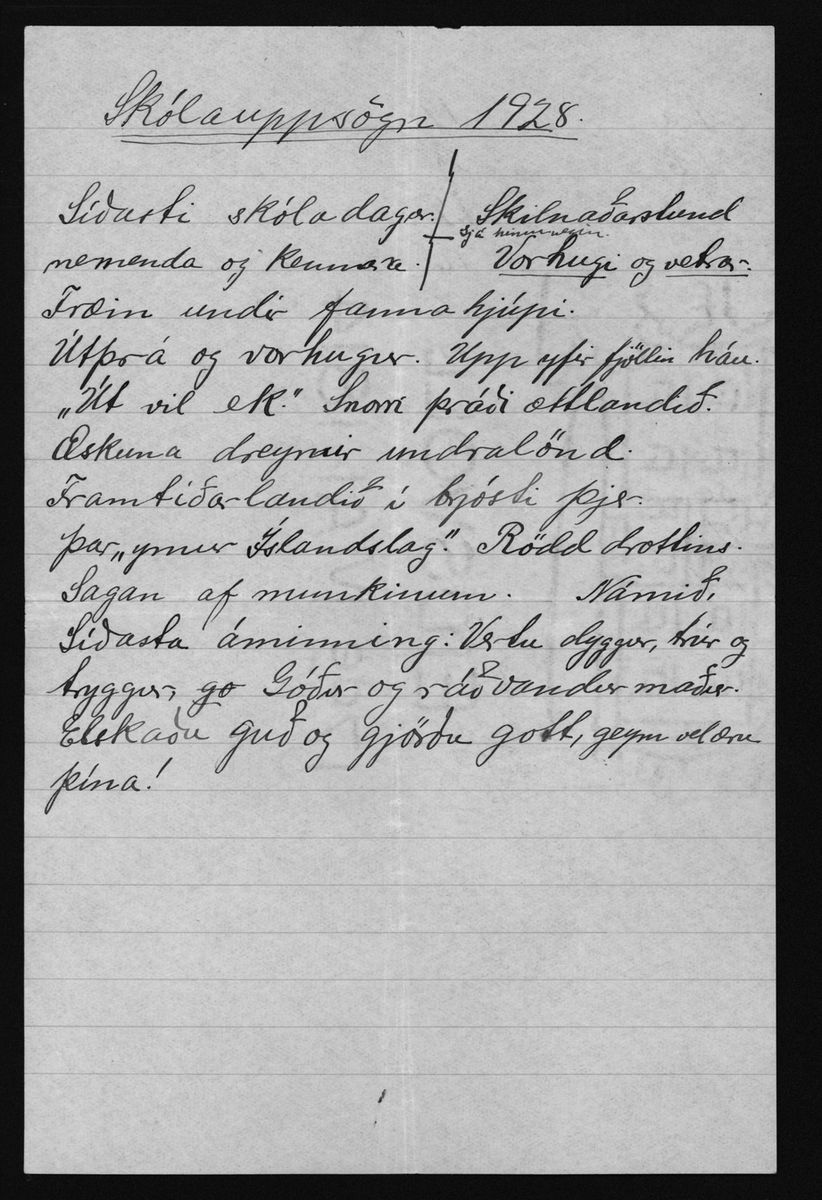 Skólauppsögn 1928.
Síðasti skóladagur. Skilnaðarstund
sjá hinumegin.
nemenda og kennara. Vorhugi og vetrar.
Fræin undir fannahjúpi.
Útþrá og vorhugur. Upp yfir fjöllin háu.
„Út vil ek." Snorri þráði ættlandið.
Æskuna dreymir undralönd.
Framtíðarlandið í brjósti þjer.
Þar „ymur Íslandslag." Rödd drottins.
Sagan af munkinum. Námið.
Síðasta áminning: Vertu dyggur, trúr og
tryggur, go Góður og ráðvandur maður.
Elskaðu guð og gjörðu gott, geym vel æru
þína!